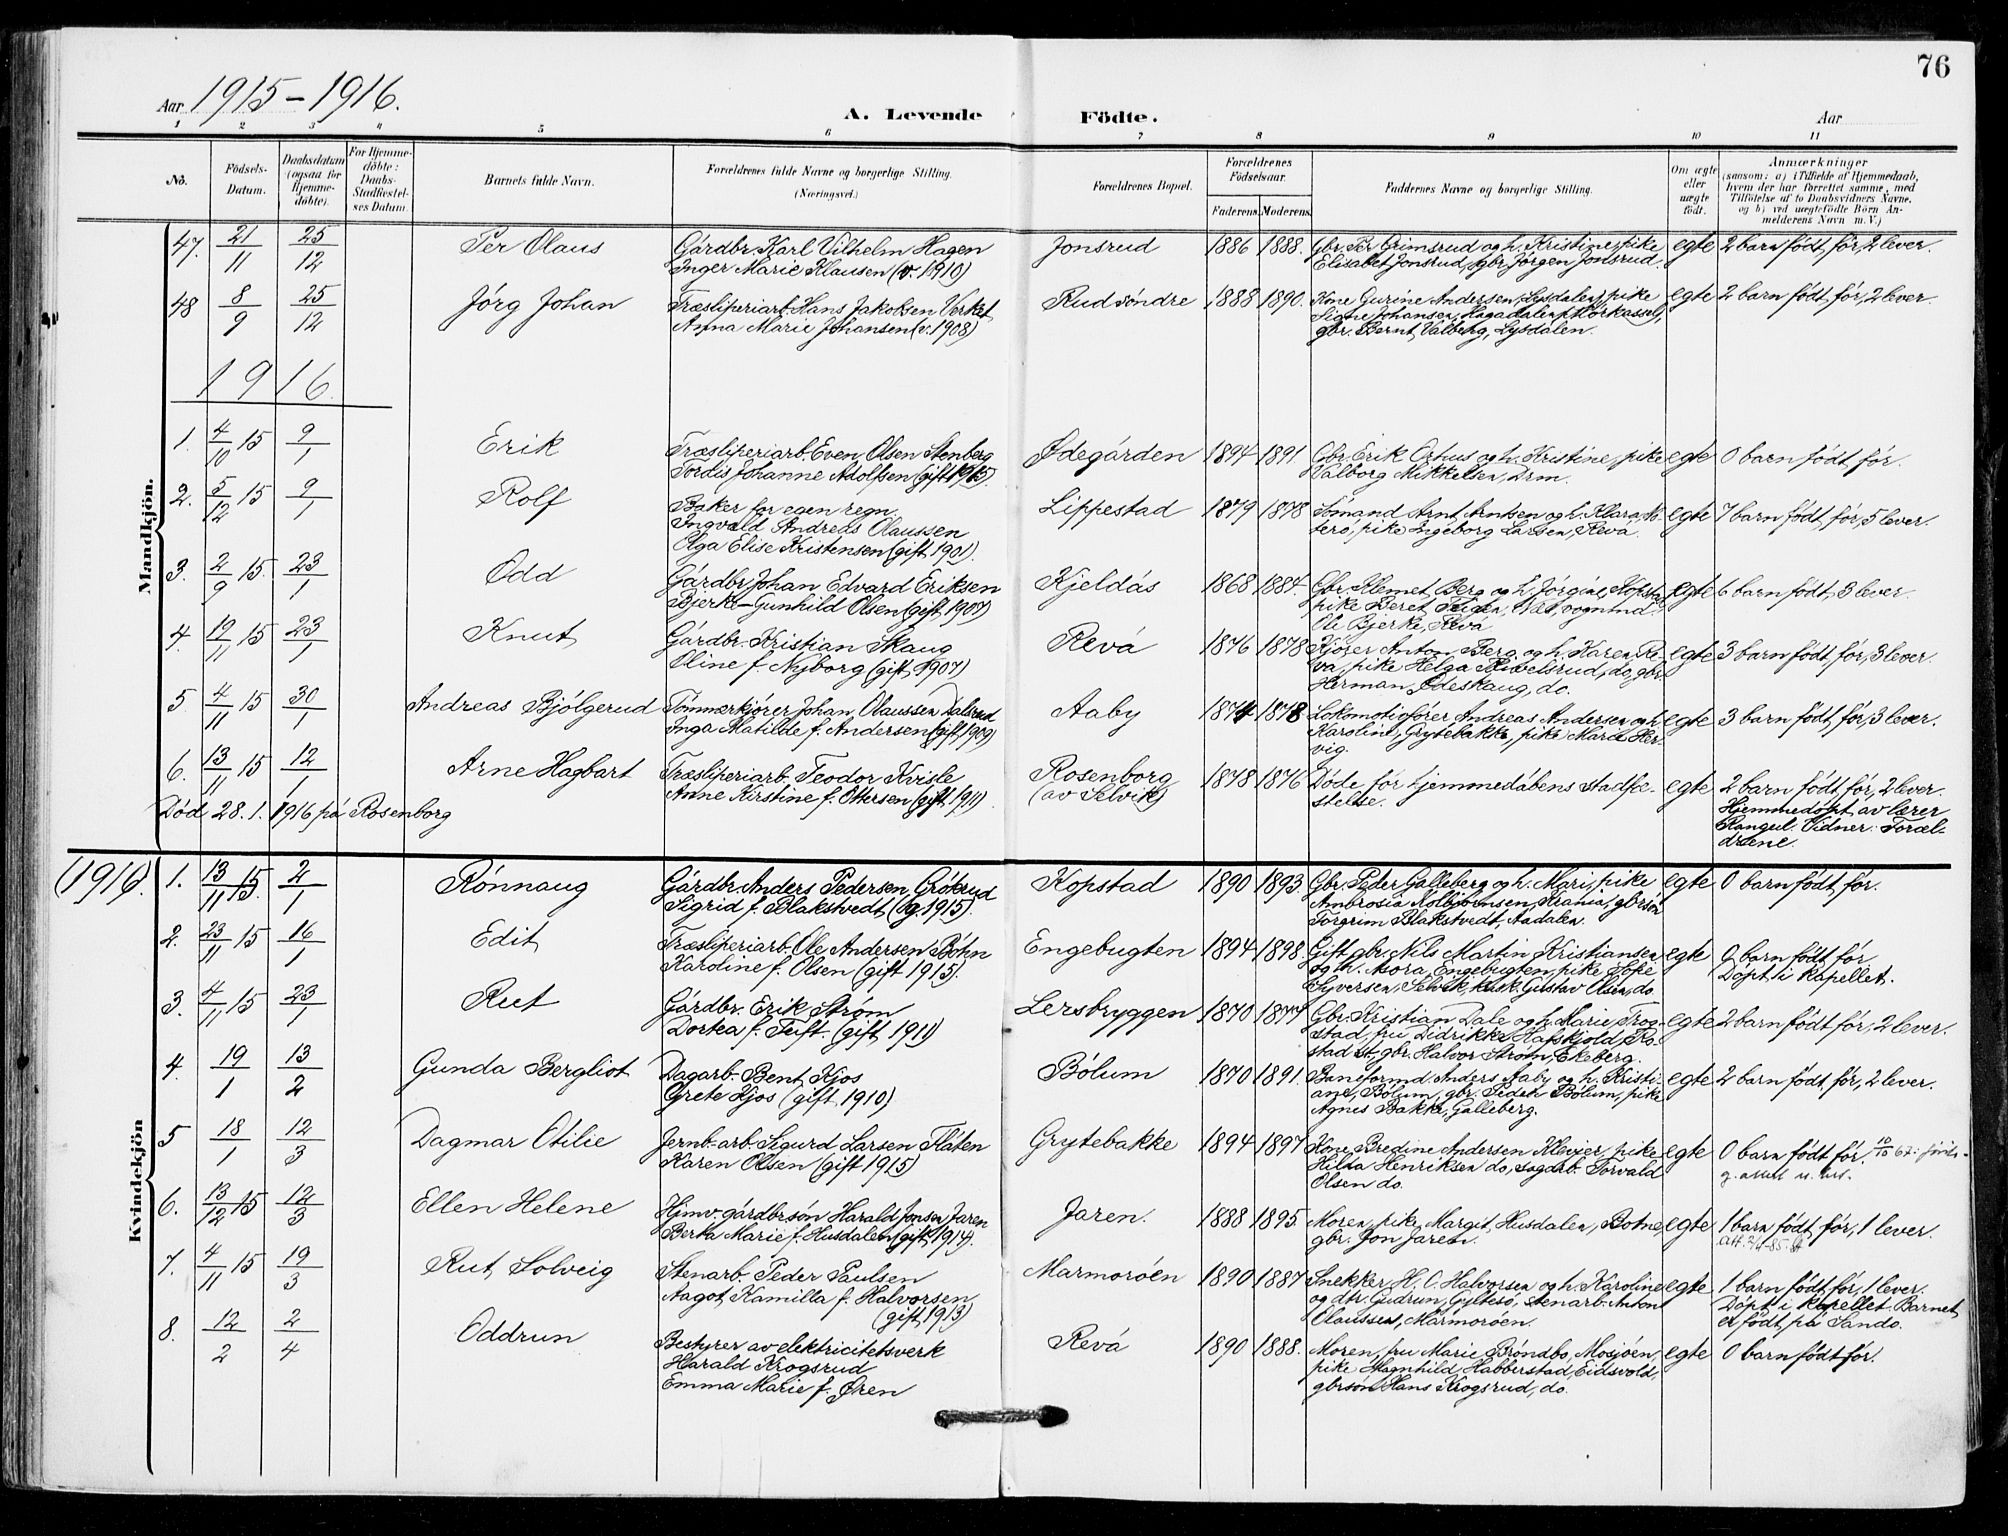 76
Aar 1915-1916.
A. Levende Födte.
Aar
1 2 3 4 5 6 7 8 9 10 11
No.
Födsels-Datum.
Daabsdatum (ogsaa for Hjemme-döbte).
For Hjemme-döbte: Daabs-Stadfæstel-ses Datum.
Barnets fulde Navn.
Forældrenes fulde Navne og borgerlige Stilling. (Næringsvei.)
Forældrenes Bopæl.
Forældrenes Födselsaar.
Faderens. Moderens.
Faddernes Navne og borgerlige Stilling.
Om ægte eller uægte födt.
Anmærkninger
(saasom: a) i Tilfælde af Hjemmedaab, hvem der har forrettet samme, med Tilföielse af to Daabsvidners Navne. og b) ved uægtefödte Börn An-melderens Navn m. V.)
Mandkjön.
47. 21/11 25/12 Per Olaus Gárdbr. Karl Vilhelm Hagen Jonsrud 1886 1888. Gbr. Per Grimsrud og h. Kristine, pike egte 2 barn født før, 2 lever.
Inger Marie Klausen (v. 1910) Elisabet Jonsrud, gbr. Jørgen Jonsrud.
48 8/9 25/12 Jórg Johan Træsliperiarb. Hans Jakobsen Verket Rud søndre 1888 1890. Kone Gurine Andersen, Lysdalen, pike egte 2 barn født før, 2 lever.
Anna Marie Johansen (v. 1908) Signe Johansen, Hagadalen
gbr. Bernt Valberg, Lysdalen.
1916.
1. 4/10 15 9/1 Erik Træsliperiarb. Even Olsen Stenberg Ødegárden 1894 1891 Gbr. Erik Orhus og h. Kristine, pike egte 0 barn født før.
Tordis Johanne Adolfsen (gift 1915). Valborg Mikkelsen, Drm.
2. 5/12 15 9/1 Rolf Baker for egen regn. Lippestad 1879 1878 Sømand Arnt Arntsen og h. Klara egte 7 barn født før, 5 lever.
Ingvald Andreas Olaussen pike Ingeborg Larsen, Revá.
Olga Elise Kristensen (gift 1901).
3. 2/9 15. 23/1 Odd Gárdbr. Johan Edvard Eriksen Kjeldás 1868 1884. Gbr. Klemet Berg og h. Jørgine, Kopstad egte 6 barn født, 3 lever.
Bjerke - Gunhild Olsen (gift 1907) pike Beret
Ole Bjerke, Revá
4. 19/11 15 23/1 Knut Gárdbr. Kristian Skaug Revá 1876 1878 Kjøser Anton Berg og h. Karen Re- egte 3 barn født før, 3 lever.
Oline f. Nyborg (gift 1907) vá, pike Helga do, gbr.
Herman Ødeskaug, do.
5 4/11 15 30/1 Andreas Bjólgerud Tømmerkjører Johan Olaussen Dalsrud Aaby 1874 1878 Lokomotivfører Andreas Andersen og h. egte 3 barn født før, 3 lever.
Inga Matilde f. Andersen (gift 1909) Karoline, Grytebakke, pike Marie Her-
vig.
6. 13/11 15 12/1 Arne Hagbart Træsliperiarb. Teodor Kvisle Rosenborg 1878 1876 Døde før hjemmedåbens stadfe- egte 2 barn født før, 2 lever.
Anne Kirstine f. Ottersen (gift 1911) (av Selvik) stelse. Hjemmedøpt av lærer
Død 28. 1. 1916 pá Rosenborg Rangul. Vidner: Foræl-
drene.
Kvindekjön
(1916). 1. 13/11 15. 2/1 Rónnaug Gárdbr. Anders Pedersen Grótrud Kopstad 1890 1893. Gbr. Peder Galleberg og h. Mari, pike egte 0 barn født før.
Sigrid f. Blakstvedt (g. 1915). Ambrosia Kolbjørnsen, Krania, gbrsøn
Torgrim Blakstvedt, Aadalen.
2. 23/11 15 16/1 Edit Træsliperiarb. Ole Andersen Bøhn Engebugten 1894 1898. Gift gbr. Nils Martin Kristiansen egte 0 barn født før.
Karoline f. Olsen (gift 1915). og h. Mora, Engebugten, pike Sofie Døpt i kapellet.
Syversen, Selvik, Gustav Olsen, do
3. 4/11 15 23/1 Rut Gárdbr. Erik Strøm Lersbryggen 1870 1877 Gbr. Kristian Dale og h. Marie, Trog- egte 2 barn født før, 2 lever.
Dortea f. Teift. (gift 1911) stad, fru Didrikke Hafskjold,
gbr. Halvor Strøm, Ekeberg.
4. 19/1 13/2 Gunda Bergliot Dagarb. Bent Kjos Bólum 1870 1891. Baneformd. Anders Aaby og h. Kristi- egte 2 barn født før, 2 lever.
Grete Kjos (gift 1910) ane, Bólum, gbr. Peder Bólum, pike
Agnes Bakke, Galleberg.
5 18/1 12/3 Dagmar Otilie Jernb.-arb. Sigurd Larsen Fláten Grytebakke 1894 1897 Kone Bredine Andersen Klevjer, pike egte 0 barn født før. 10/10 67:
Karen Olsen (gift 1915) Hilda Henriksen do, sagarb. Torvald
Olsen do.
6. 13/12 15 12/3 Ellen Helene Hjmv. gárdbrsøn Harald Jonsen Jaren Jaren. 1888 1895. Moren, pike Margit Husdalen, Botne, egte 1 barn født før, 1 lever.
Berta Marie f. Husdalen (gift 1914). gbr. Jon Jaren.
7. 4/11 15 19/3 Rut Solveig Stenarb. Peder Paulsen Marmorøen 1890 1887 Snekker H. O. Halvorsen og h. Karoline egte 1 barn født før, 1 lever.
Aagot Kamilla f. Halvorsen og dtr. Gudrun, Gyltesø, stenarb. Anton Døpt i kapellet. Barnet
(gift 1913) Olaussen, Marmorøen. er født på Sando.
8. 12/2 2/4 Oddrun Bestyrer av elektricitetsverk Revá 1890 1888. Moren, fru Marie Brøndbo, Mosjøen, egte 0 barn født før.
Harald Krogsrud pike Magnhild Habberstad, Eidsvold,
Emma Marie f. Øren gbrsøn Hans Krogsrud, do.